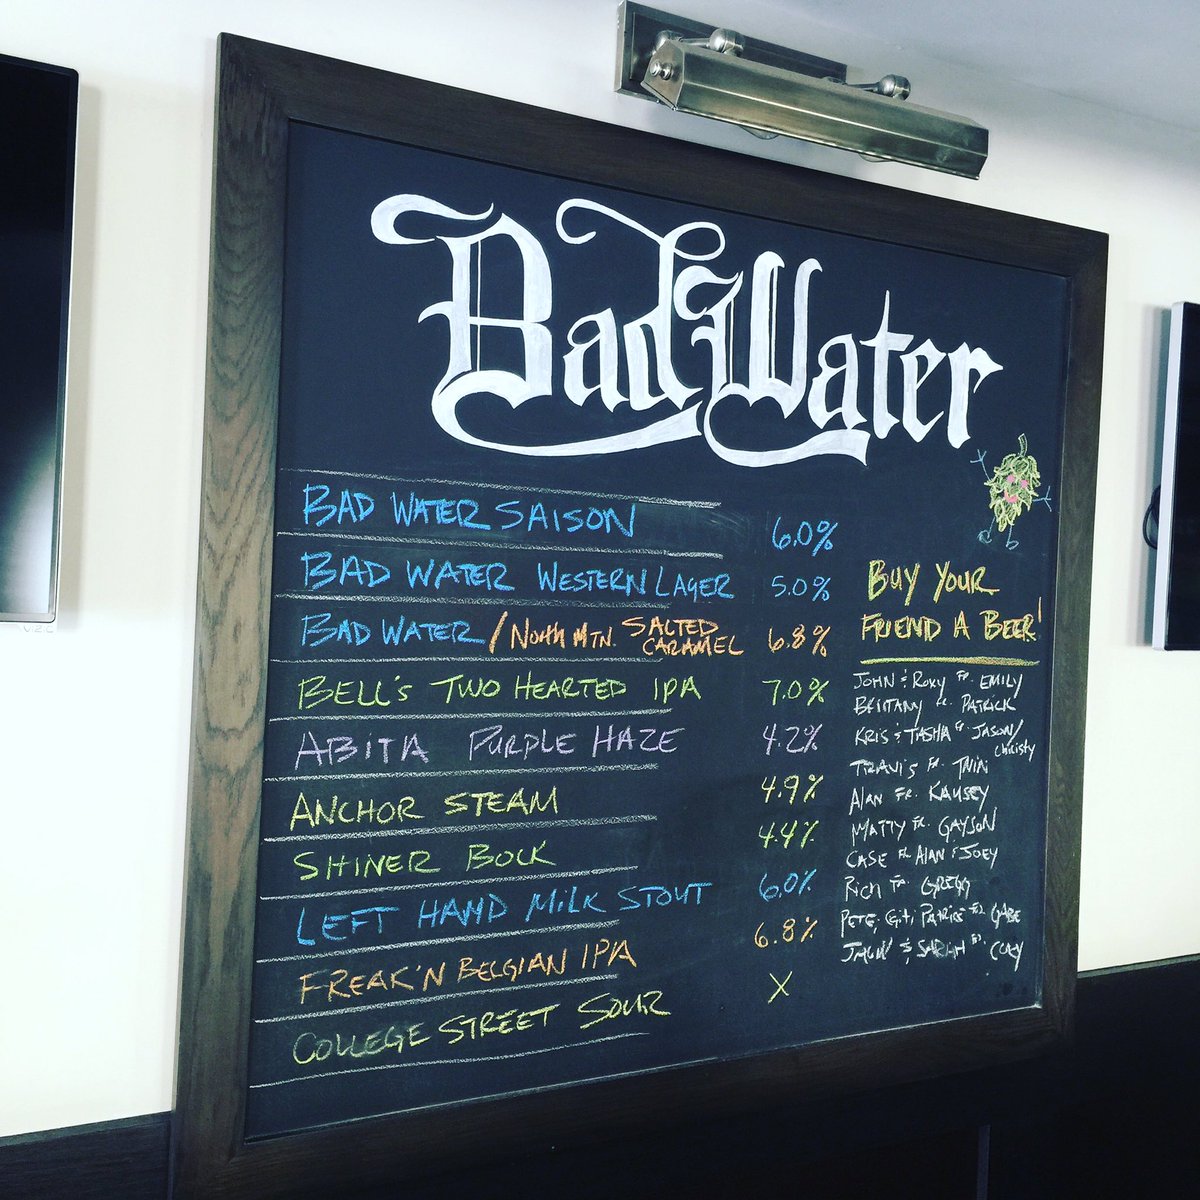 Bad Water
BAD WATER SAISON 6.0%
BAD WATER WESTERN LAGER 5.0%
BAD WATER / NORTH MTN. SALTED CARAMEL 6.8%
BELL'S TWO HEARTED IPA 7.0%
ABITA PURPLE HAZE 4.2%
ANCHOR STEAM 4.9%
SHINER BOCK 4.4%
LEFT HAND MILK STOUT 6.0%
FREAK'N BELGIAN IPA 6.8%
COLLEGE STREET SOUR X
BUY YOUR
FRIEND A BEER!
JOHN & ROXY FR. EMILY
BRITTANY FR. PATRICK
KRIS & TASHA FR. JASON/
Christy
TRAVIS FR.
Alan FR. KAUSEY
MATTY FR. GAYSON
CASE FR. ALAN & JOEY
RICH FR. GREGG
PETE, FR. GABE
& SARAH FR. COREY